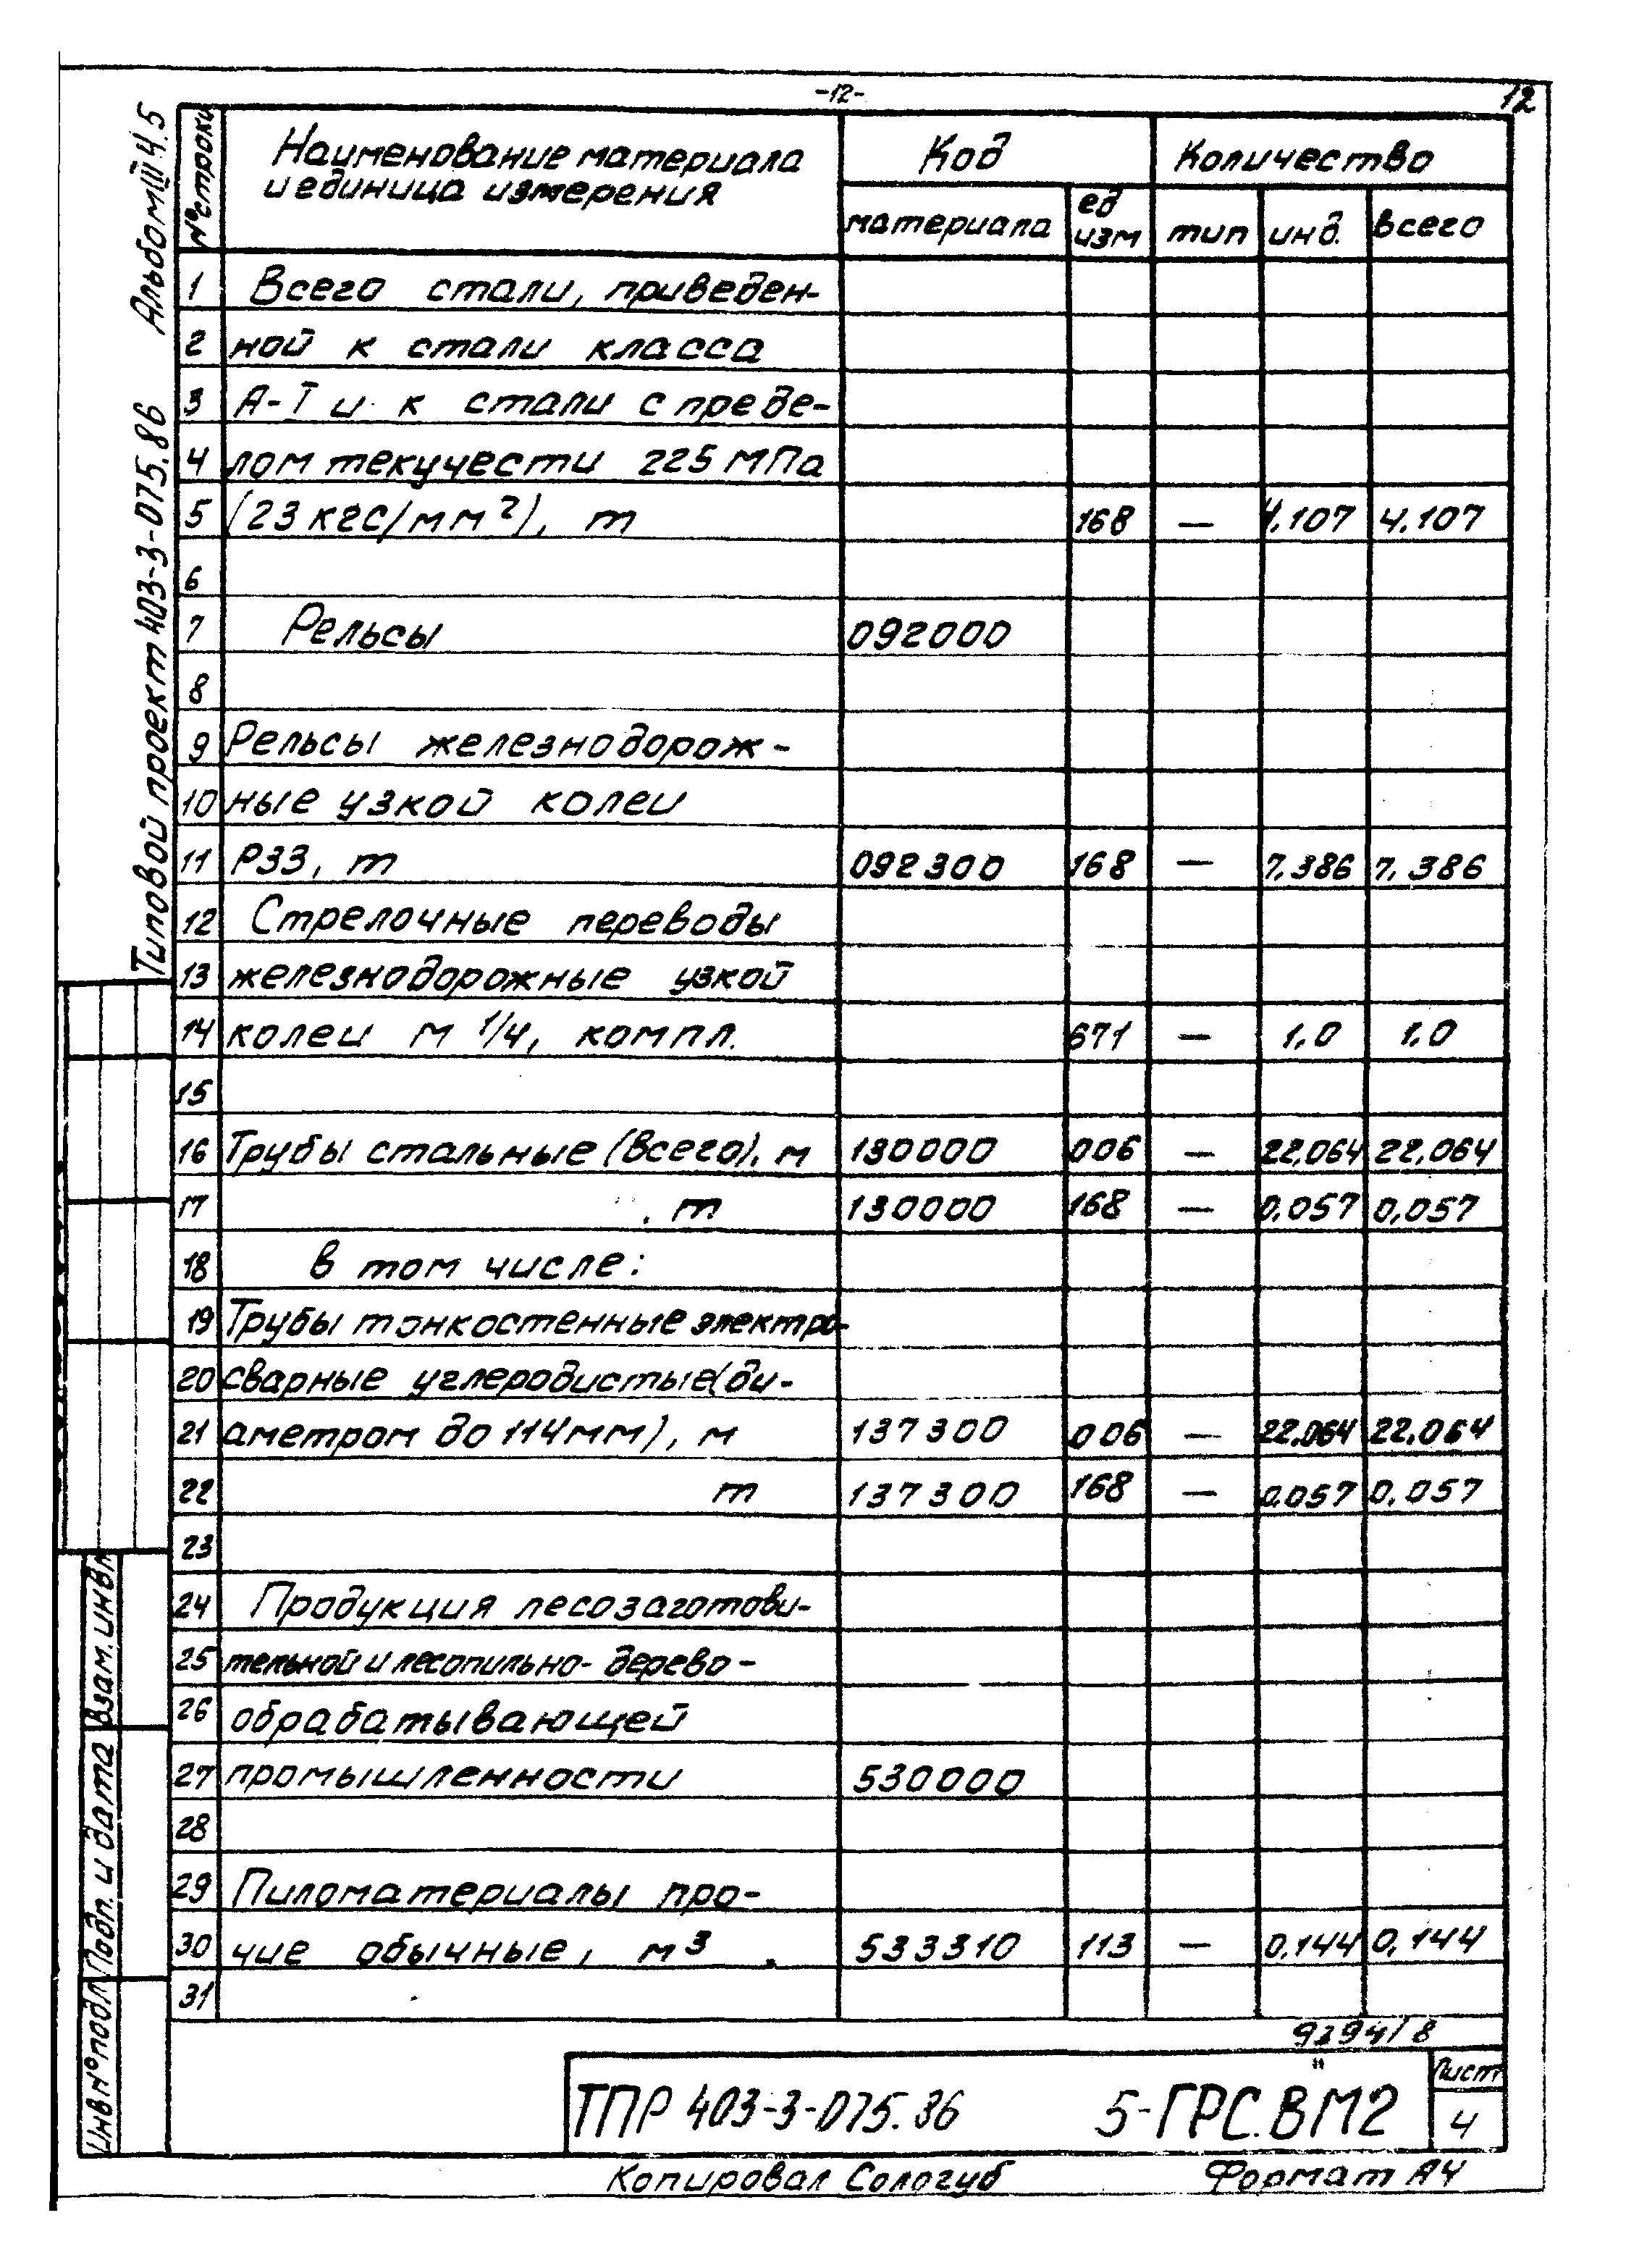 -12-
12
Альбом III ч.5
Типовой проект 403-3-075.86
№ строки
Наименование материала
и единица измерения
Код
Количество
материала
ед
изм
тип
инд.
всего
1 Всего стали, приведен-
2 ной к стали класса
3 А-I и к стали с преде-
4 лом текучести 225 МПа
5 (23 кгс/мм²), т 168 — 4.107 4.107
6
7 Рельсы 092000
8
9 Рельсы железнодорож-
10 ные узкой колеи
11 Р33, т 092300 168 — 7.386 7.386
12 Стрелочные переводы
13 железнодорожные узкой
14 колеи М 1/4, компл. 671 — 1,0 1,0
15
16 Трубы стальные (всего), м 130000 006 — 22,064 22,064
17 , т 130000 168 — 0,057 0,057
18 в том числе:
19 Трубы тонкостенные электро-
20 сварные углеродистые (ди-
21 аметром до 114мм), м 137300 006 — 22.064 22.064
22 т 137300 168 — 0.057 0,057
23
24 Продукция лесозаготови-
25 тельной и лесопильно-дерево-
26 обрабатывающей
27 промышленности 530000
28
29 Пиломатериалы про-
30 чие обычные, м³ 533310 113 — 0,144 0,144
31
Взам. инв.
Подп. и дата
Инв № подл
9294/8
ТПР 403-3-075.86
5-ГРС.ВМ2
Лист
4
Копировал Сологуб
Формат А4